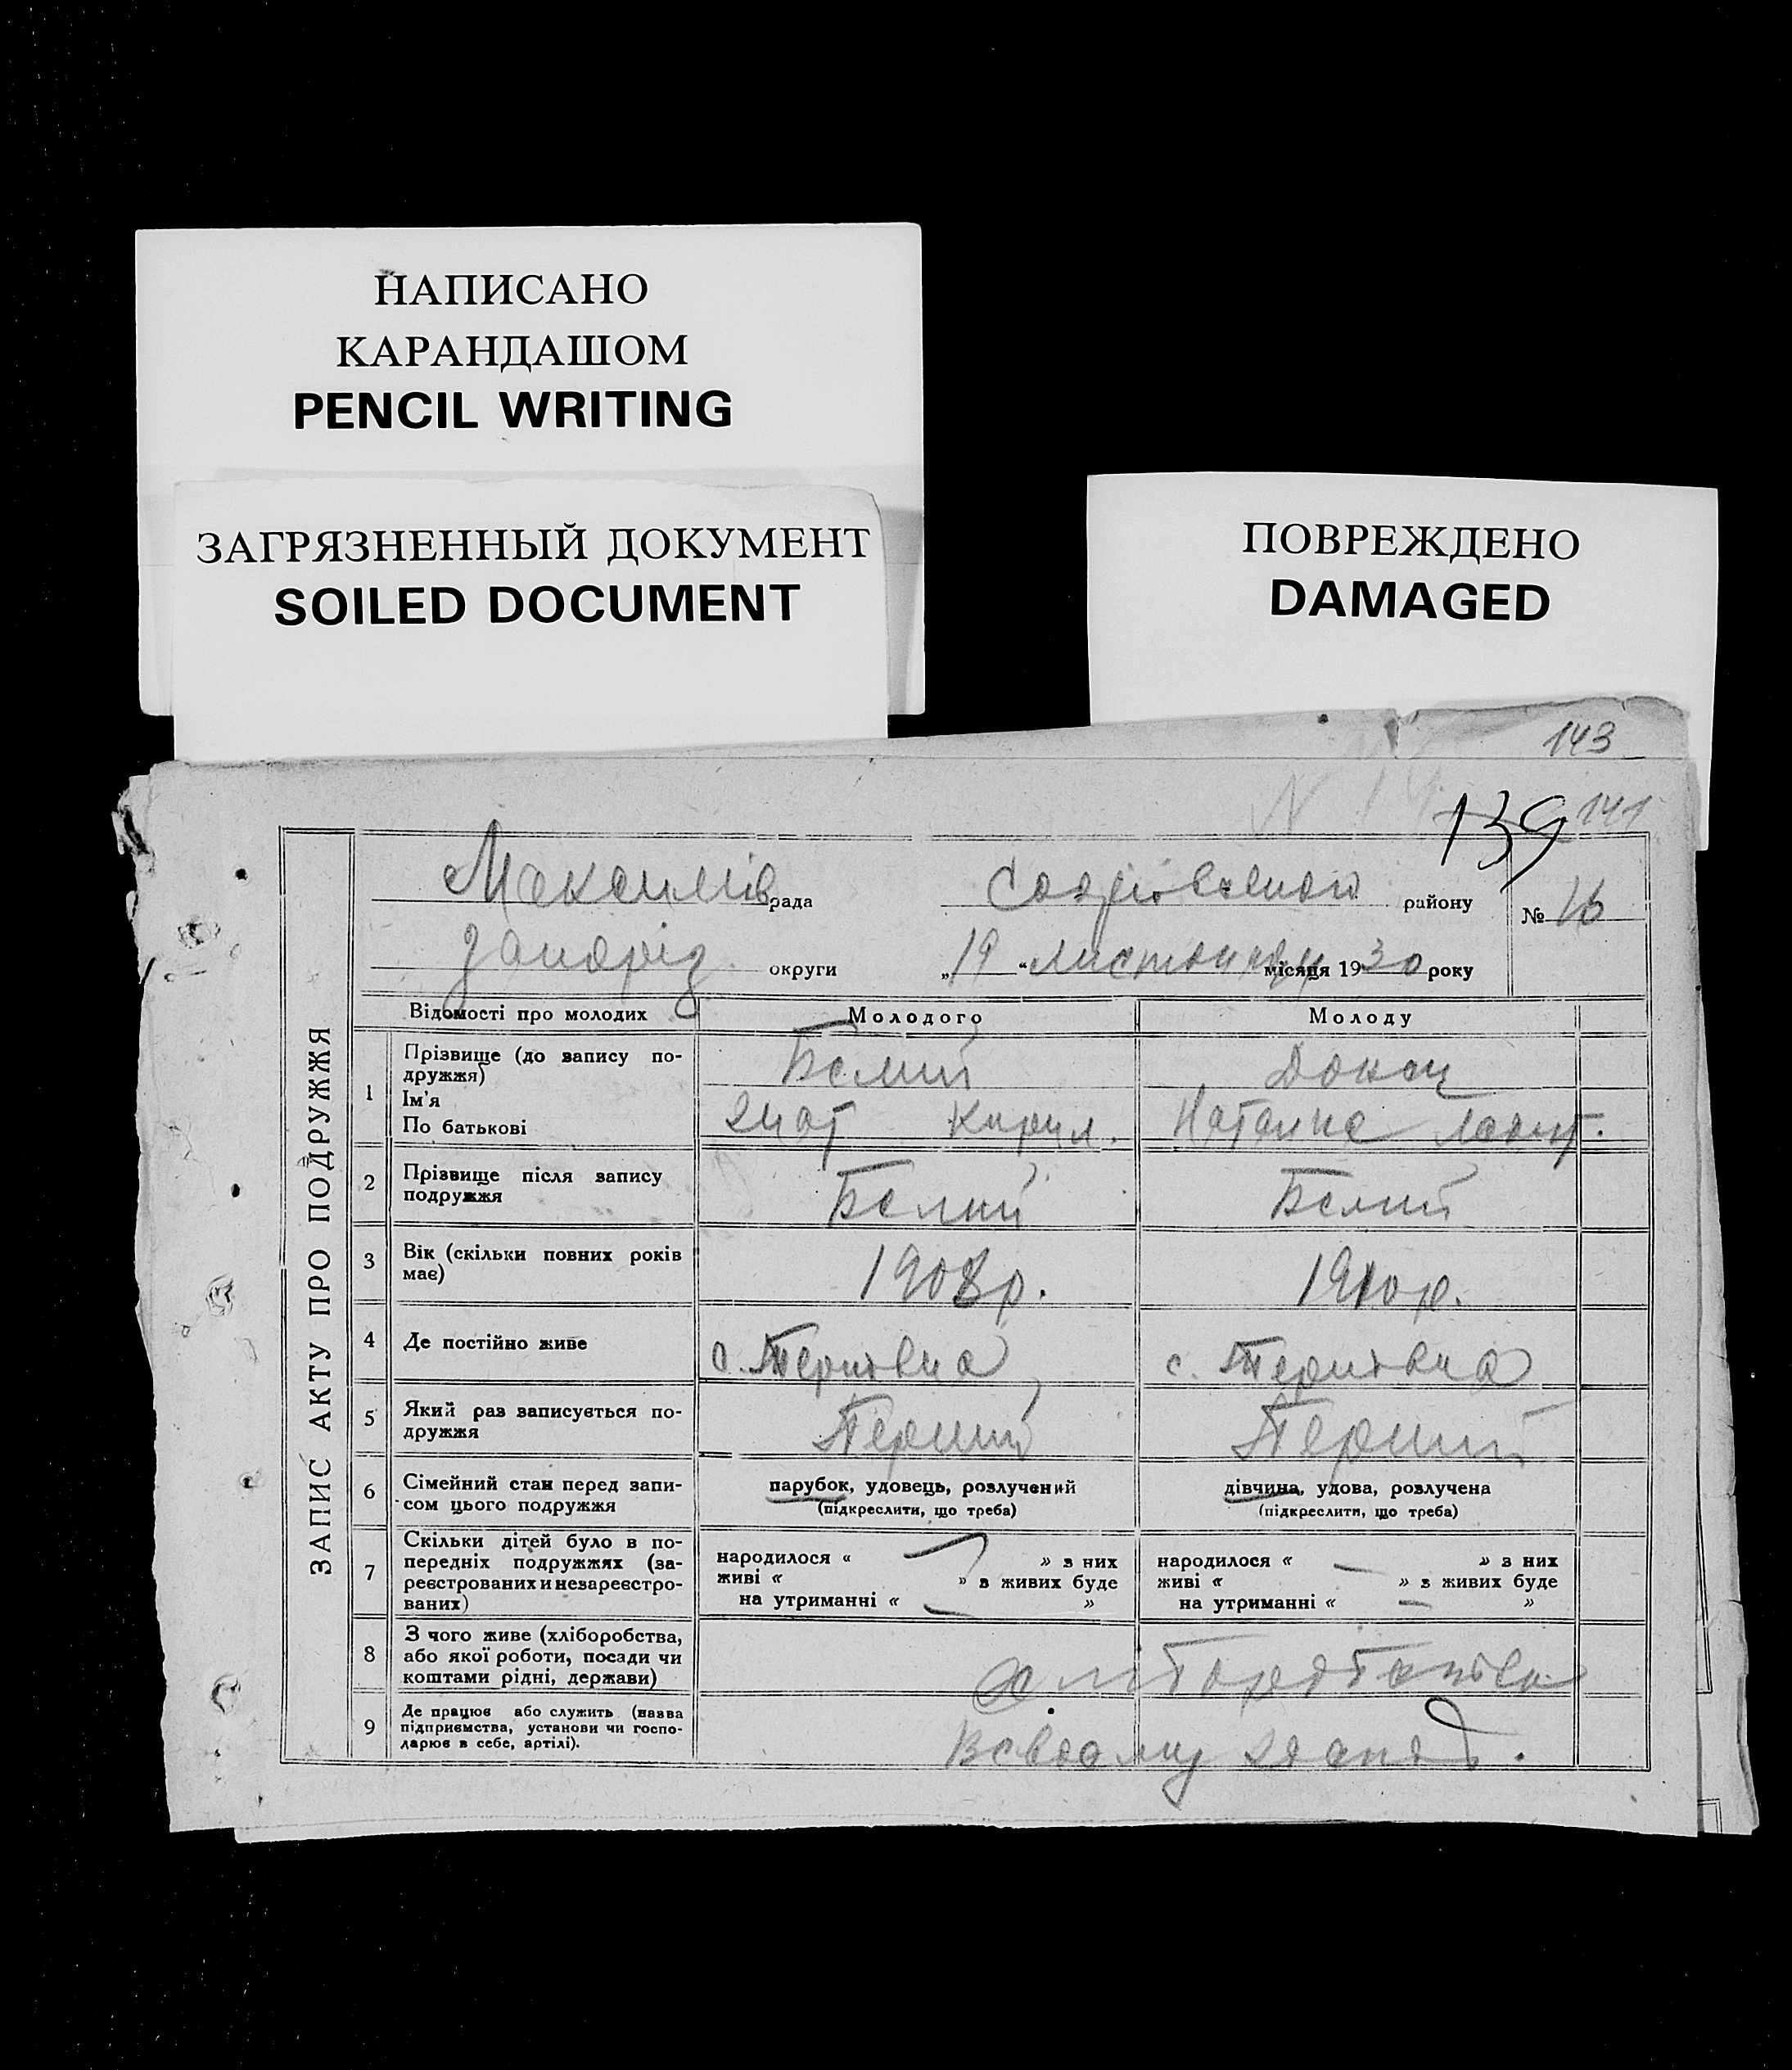 НАПИСАНО
КАРАНДАШОМ
PENCIL WRITING
ЗАГРЯЗНЕННЫЙ ДОКУМЕНТ
SOILED DOCUMENT
ПОВРЕЖДЕНО
DAMAGED
143
139 141
ЗАПИС АКТУ ПРО ПОДРУЖЖЯ
рада району № 16
Запоріз округи „19“ листопада місяця 1930 року
Відомості про молодих Молодого Молоду
1 Прізвище (до запису по-
дружжя) Белий Донец
Ім'я
По батькові Игнат Кирил. Наталие
2 Прізвище після запису
подружжя Белий Белий
3 Вік (скільки повних років
має) 1908р. 1910р.
4 Де постійно живе с. Тернівка с. Тернівка
5 Який раз записується по-
дружжя Перший Перший
6 Сімейний стан перед запи-
сом цього подружжя
парубок, удовець, розлучений
(підкреслити, що треба)
дівчина, удова, розлучена
(підкреслити, що треба)
7 Скільки дітей було в по-
передніх подружжях (за-
реєстрованих и незареєстро-
ваних)
народилося « » з них
живі « » з живих буде
на утриманні « »
народилося « » з них
живі « » з живих буде
на утриманні « »
8 З чого живе (хліборобства,
або якої роботи, посади чи
коштами рідні, держави)
хліборобство
9 Де працює або служить (назва
підприємства, установи чи госпо-
дарює в себе, артілі).
В своому